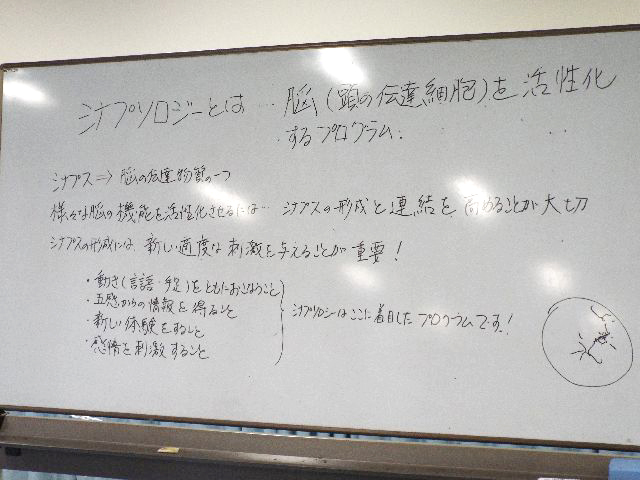 シナプソロジーとは… 脳(頭の伝達細胞)を活性化
するプログラム.
シナプス⇒脳の伝達物質の一つ
様々な脳の機能を活性化させるには… シナプスの形成と連結を高めることが大切
シナプスの形成には 新しい適度な刺激を与えることが重要!
・動き(言語・手足)をともにおこなうこと
・五感からの情報を得ること
・新しい体験をすること
・感情を刺激すること
シナプソロジーはここに着目したプログラムです!